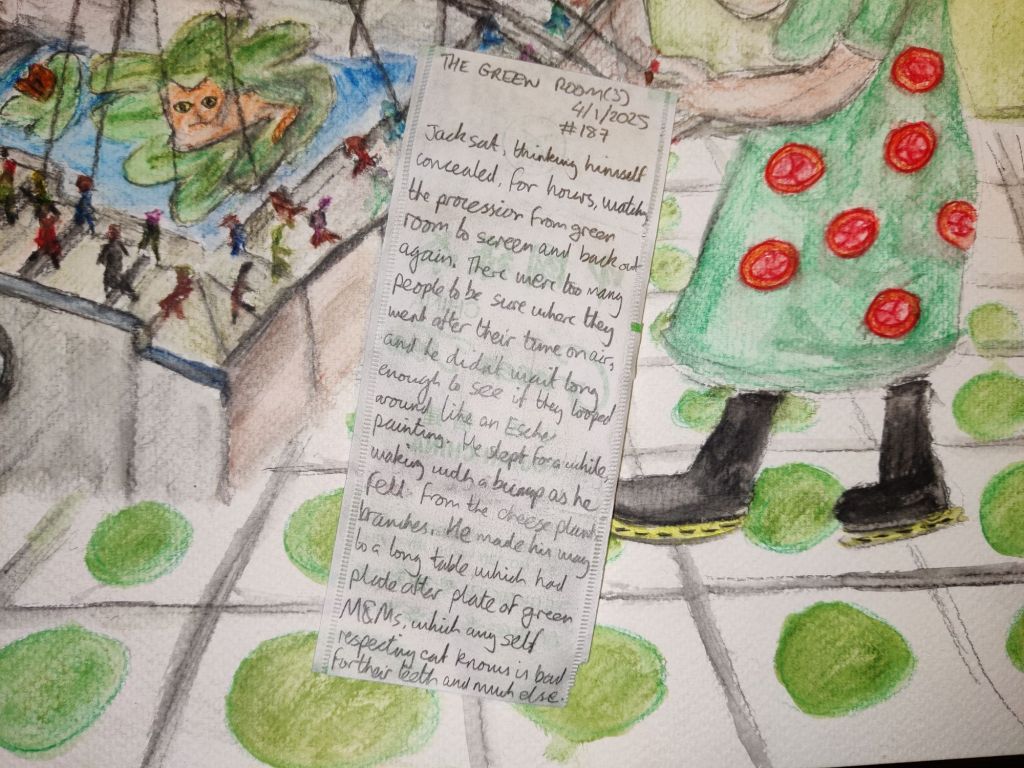 THE GREEN ROOM(S)
4/1/2025
#187
Jack sat, thinking himself
concealed, for hours, watching
the procession from green
room to screen and back out
again. There were too many
people to be sure where they
went after their time on air,
and he didn't wait long
enough to see if they looped
around like an Escher
painting. He slept for a while,
waking with a bump as he
fell from the cheese plant
branches. He made his way
to a long table which had
plate after plate of green
M&Ms, which any self
respecting cat knows is bad
for their teeth and much else.